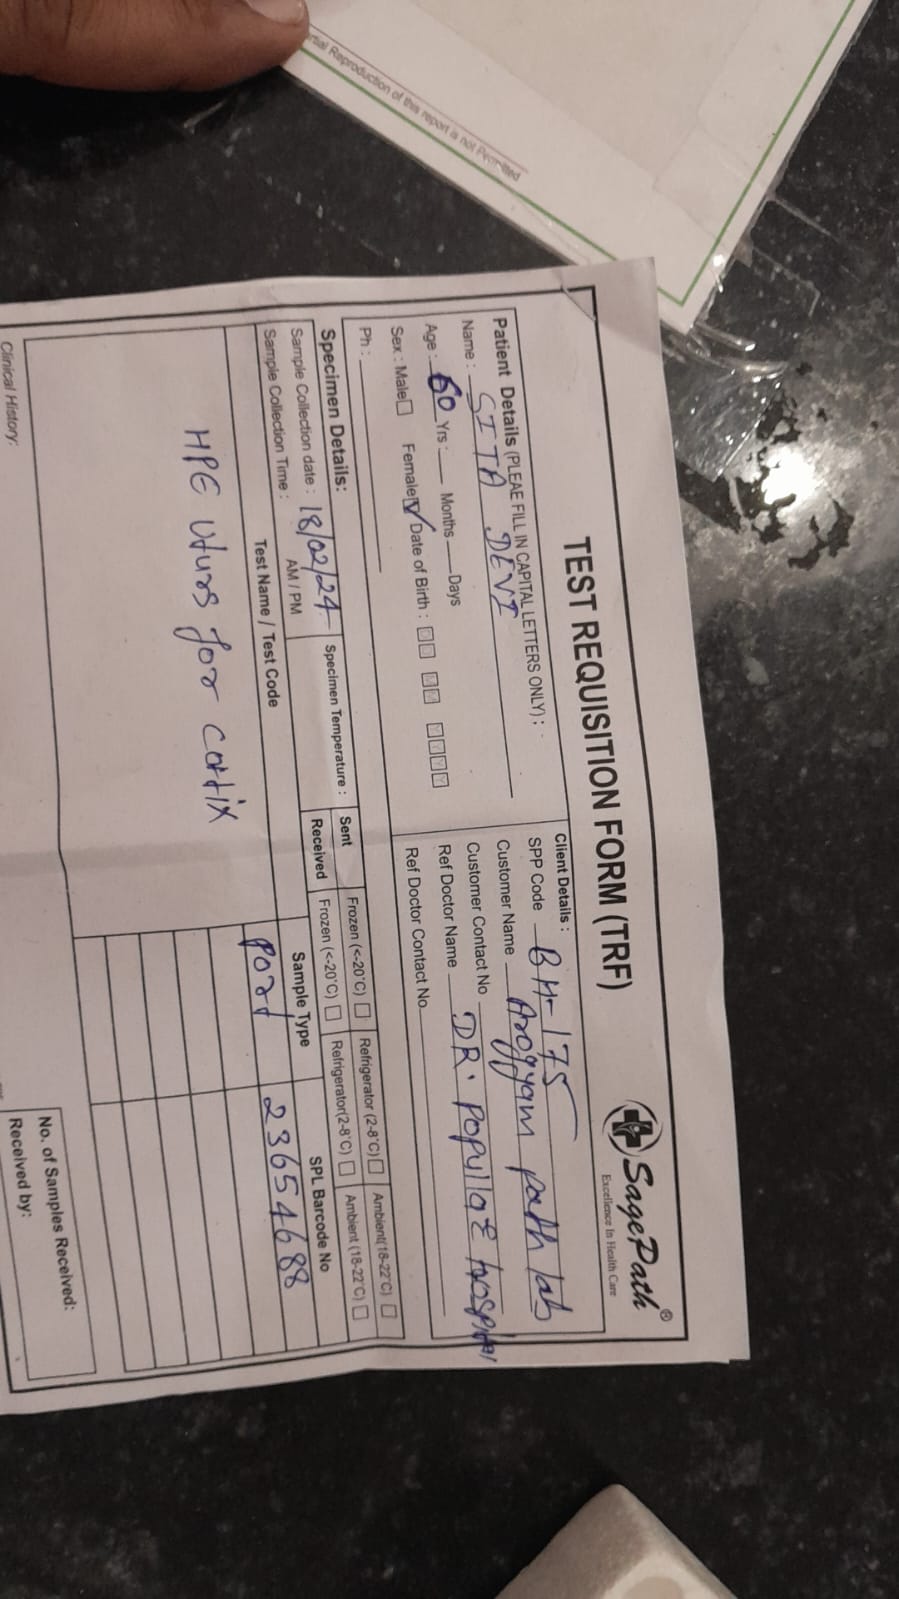 rtial Reproduction of this report is not Permitted
TEST REQUISITION FORM (TRF)
SagePath®
Excellence In Health Care
Patient Details (PLEAE FILL IN CAPITAL LETTERS ONLY) :
Name : SITA DEVI
Age : 60 Yrs : Months Days
Sex : Male Female ✓ Date of Birth : D D M M Y Y Y Y
Ph :
Client Details :
SPP Code BH-175
Customer Name Arogyam path lab
Customer Contact No
Ref Doctor Name DR. Popyllae hospital
Ref Doctor Contact No.
Specimen Details:
Sample Collection date : 18/02/24
Sample Collection Time : AM / PM
Specimen Temperature :
Sent Frozen (<-20°C) Refrigerator (2-8°C) Ambient(18-22°C)
Received Frozen (<-20°C) Refrigerator(2-8°C) Ambient (18-22°C)
Test Name / Test Code
Sample Type
SPL Barcode No
HPE Uturs for cortix
23654688
Clinical History:
No. of Samples Received:
Received by: